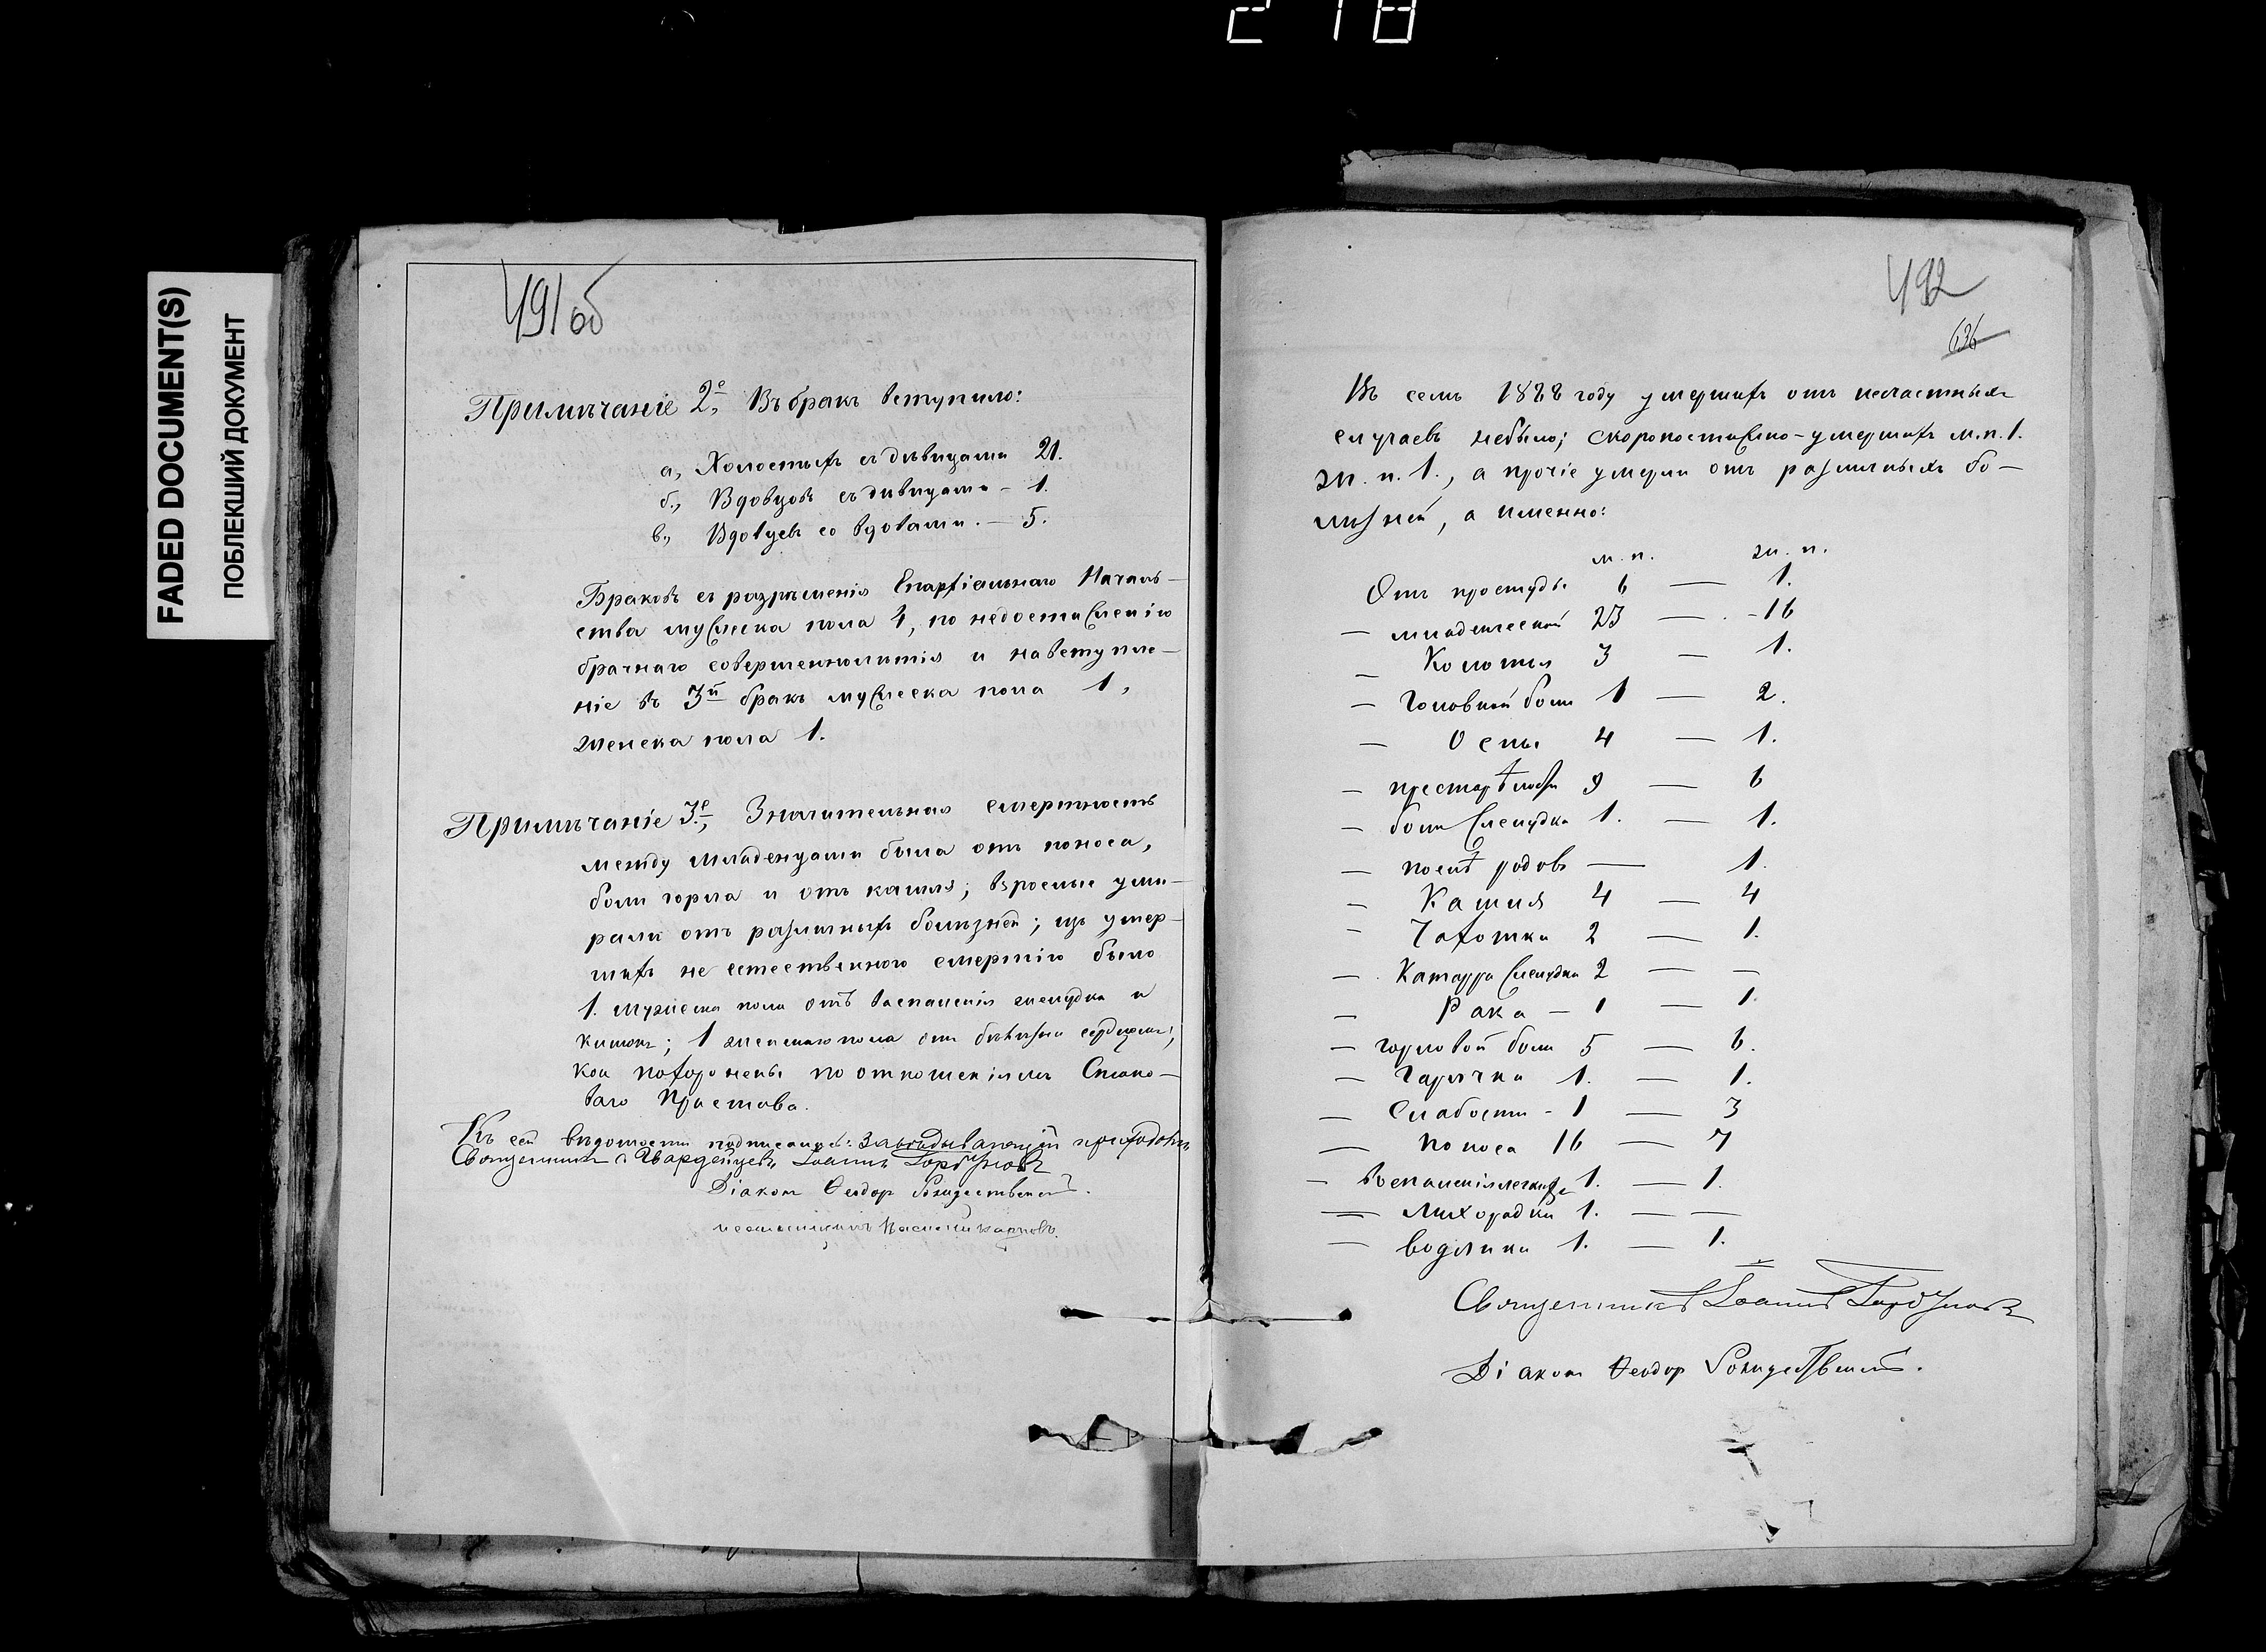 218
FADED DOCUMENT(S)
ПОБЛЕКШИЙ ДОКУМЕНТ
491об
Примѣчаніе 2е, Въ бракъ вступило:
а., Холостыхъ съ дѣвицами 21.
б., Вдовцовъ съ дѣвицами – 1.
в., Вдовцевъ со вдовами. – 5.
Браковъ съ разрѣшенія Епархіальнаго Началь-
ства мужеска пола 1, по недостиженію
брачнаго совершеннолѣтія и на вступле-
ніе въ 3й бракъ мужеска пола 1,
женска пола 1.
Примѣчаніе 3е, Значительная смертность
между младенцами была отъ поноса,
боли горла и отъ кашля; взрослые уми-
рали отъ различныхъ болѣзней; изъ умер-
шихъ не естественною смертію было
1. мужеска пола отъ воспаленія желудка и
кишокъ; 1 женскаго пола отъ болѣзни сердца;
кои похоронены по отношеніямъ Стано-
ваго Пристава.
Къ сей вѣдомости подписались: Завѣдывающій приходомъ
Священникъ с. Гвардейцевъ Іоаннъ Горбуновъ
Діаконъ Ѳеодоръ Рождественскій.
псаломщикъ Василій Карповъ.
492
636
Въ семъ 1888 году умершихъ отъ несчастныхъ
случаевъ небыло; скоропостижно-умершихъ м.п. 1.
ж. п. 1., а прочіе умерли отъ различныхъ бо-
лѣзней, а именно:
м. п. ж. п.
Отъ простуды 6 — 1.
— младенческой 23 — 16
— Колотья 3 — 1.
— Головной боли 1 — 2.
— Оспы 4 — 1.
— престарѣлости 9 — 6
— боли желудка 1. — 1.
— послѣ родовъ — 1.
— Кашля 4 — 4
— Чахотки 2 — 1.
— Катарра желудка 2 — —
— Рака – 1 — 1.
— горловой боли 5 — 6.
— Горячки 1. — 1.
— Слабости - 1 — 3
— Поноса 16 — 7
— Воспаленія легкихъ 1. — 1.
— Лихорадки 1. — —
— водянки 1. — 1.
Священникъ Іоаннъ Горбуновъ
Діаконъ Ѳеодоръ Рождественскій.